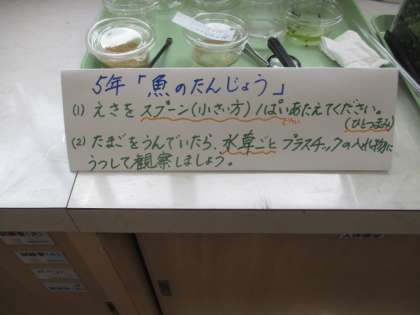 5年「魚のたんじょう」
(1) えさをスプーン(小さい方)1ぱいあたえてください。
(ひとつまみ)
(2) たまごをうんでいたら、水草ごとプラスチックの入れ物に
うつして観察しましょう。